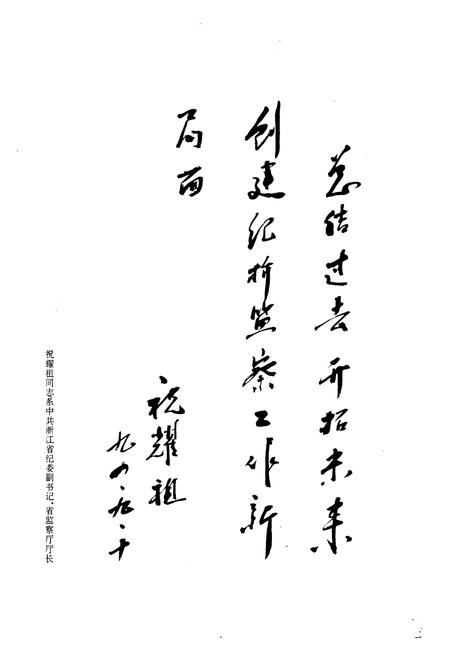 总结过去开拓未来
创建纪检监察工作新
局面
祝耀祖
九四、九、十
祝耀祖同志系中共浙江省纪委副书记、省监察厅厅长